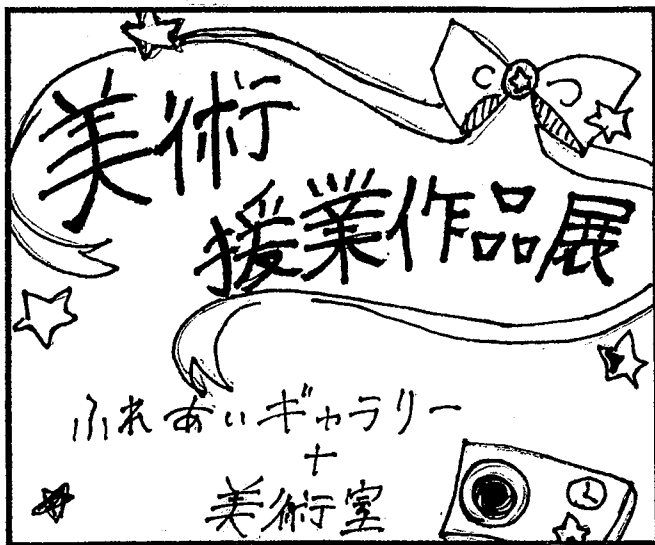 美術
援業作品展
ふれあいギャラリー
+
美術室